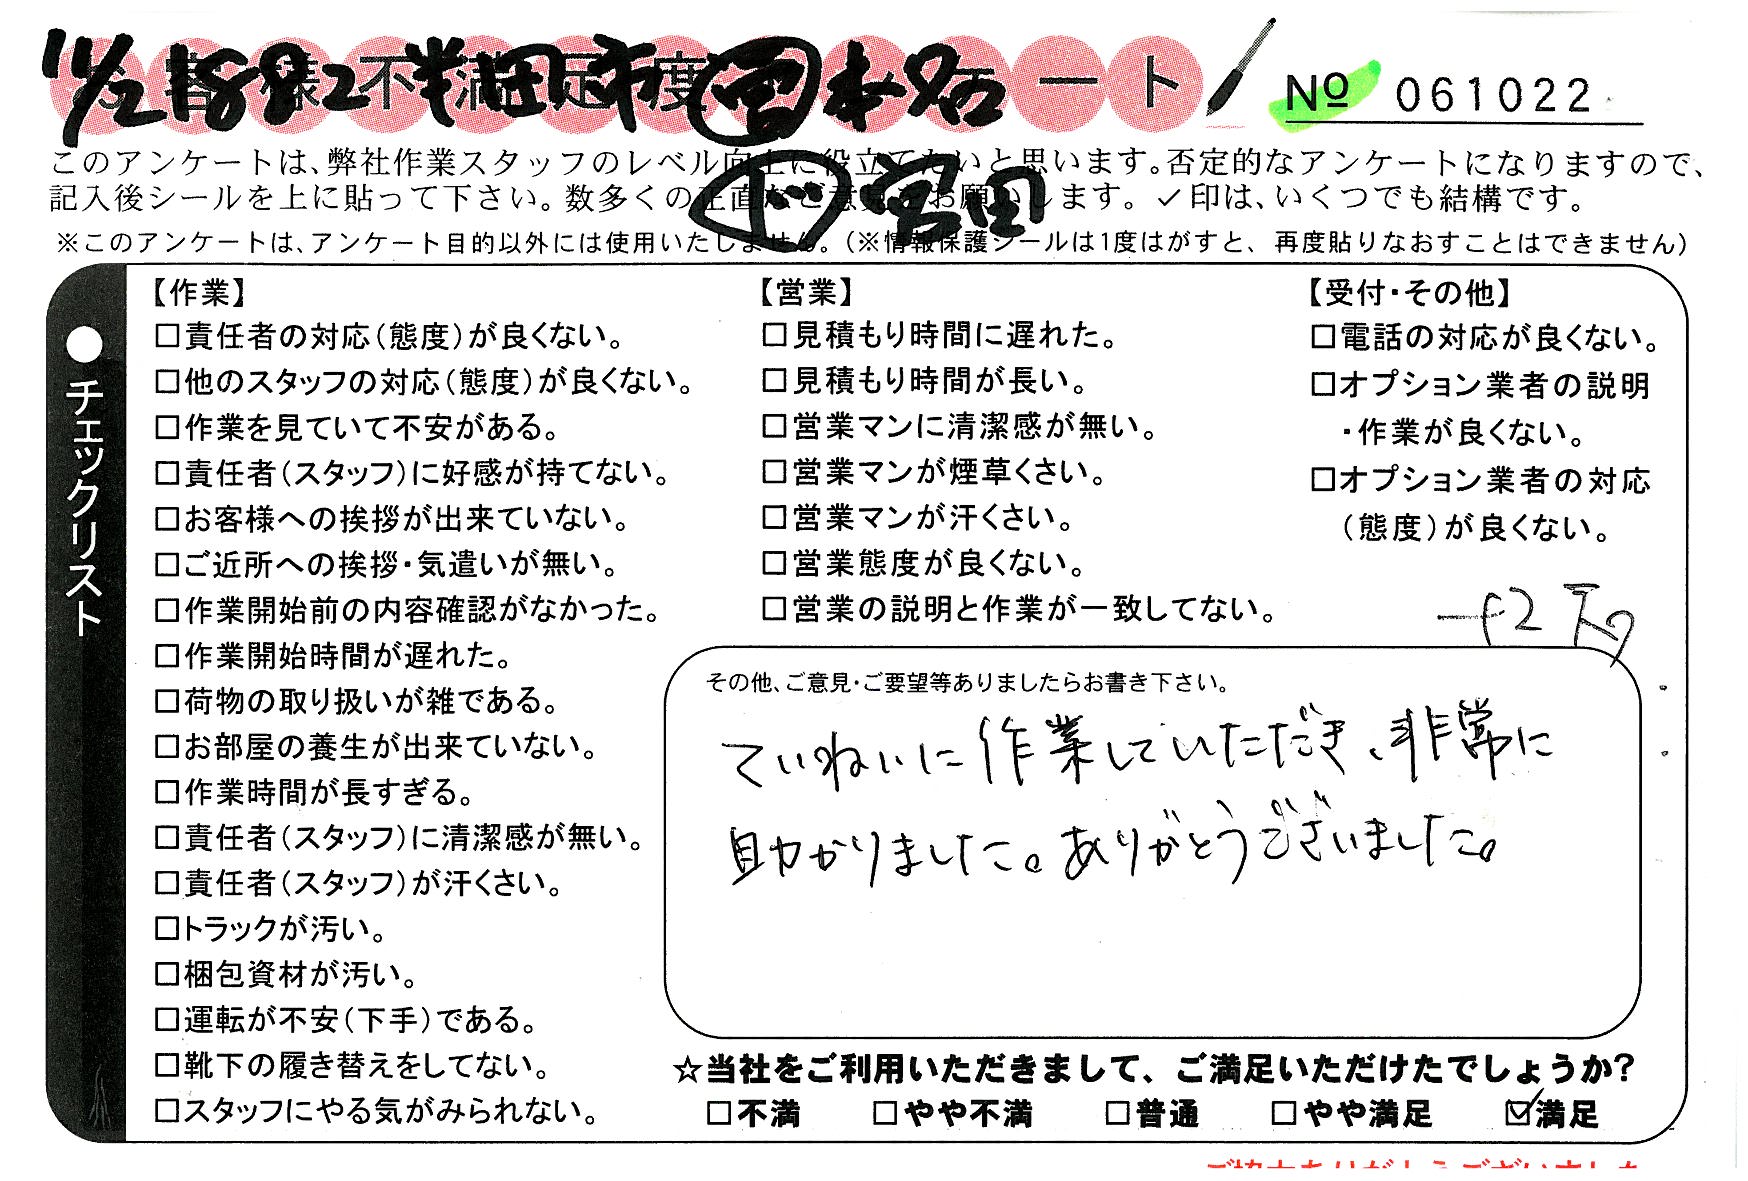 お客様不満足度アンケート
11/2 1882 半田市 宮本 名古
№ 061022
このアンケートは、弊社作業スタッフのレベル向上に役立てたいと思います。否定的なアンケートになりますので、
記入後シールを上に貼って下さい。数多くの正直なご意見をお願いします。✓印は、いくつでも結構です。
※このアンケートは、アンケート目的以外には使用いたしません。（※情報保護シールは1度はがすと、再度貼りなおすことはできません）
●チェックリスト
【作業】
□責任者の対応（態度）が良くない。
□他のスタッフの対応（態度）が良くない。
□作業を見ていて不安がある。
□責任者（スタッフ）に好感が持てない。
□お客様への挨拶が出来ていない。
□ご近所への挨拶・気遣いが無い。
□作業開始前の内容確認がなかった。
□作業開始時間が遅れた。
□荷物の取り扱いが雑である。
□お部屋の養生が出来ていない。
□作業時間が長すぎる。
□責任者（スタッフ）に清潔感が無い。
□責任者（スタッフ）が汗くさい。
□トラックが汚い。
□梱包資材が汚い。
□運転が不安（下手）である。
□靴下の履き替えをしてない。
□スタッフにやる気がみられない。
【営業】
□見積もり時間に遅れた。
□見積もり時間が長い。
□営業マンに清潔感が無い。
□営業マンが煙草くさい。
□営業マンが汗くさい。
□営業態度が良くない。
□営業の説明と作業が一致してない。
【受付・その他】
□電話の対応が良くない。
□オプション業者の説明
・作業が良くない。
□オプション業者の対応
（態度）が良くない。
その他、ご意見・ご要望等ありましたらお書き下さい。
ていねいに作業していただき、非常に
助かりました。ありがとうございました。
☆当社をご利用いただきまして、ご満足いただけたでしょうか?
□不満 □やや不満 □普通 □やや満足 ☑満足
ご協力ありがとうございました